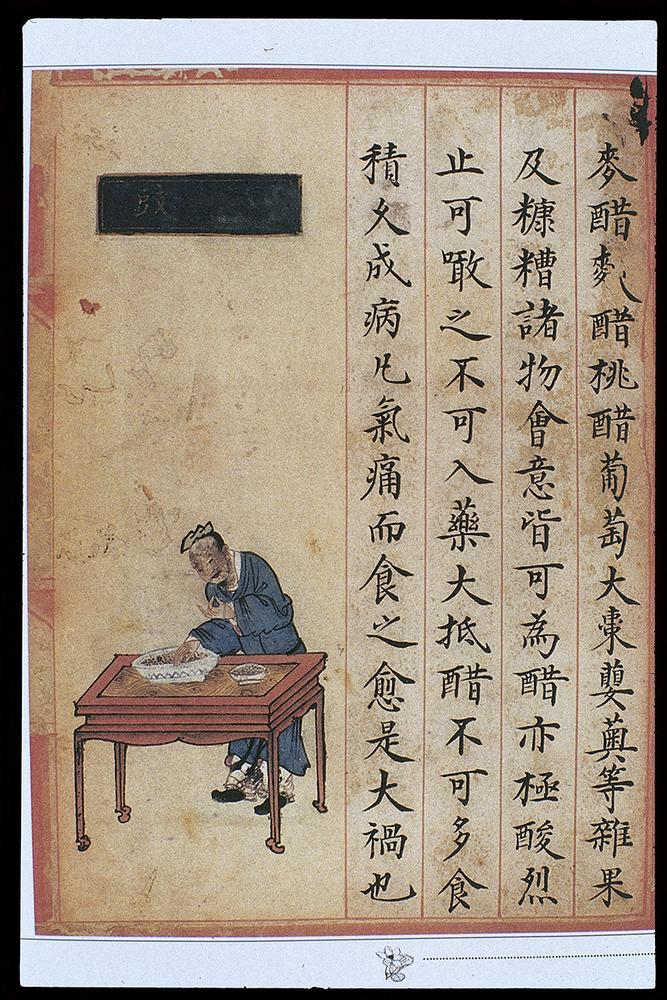 麥醋 醋桃醋葡萄大棗蘡薁等雜果
及糠糟諸物會意皆可為醋亦極酸烈
止可噉之不可入藥大抵醋不可多食
積久成病凡氣痛而食之愈是大禍也